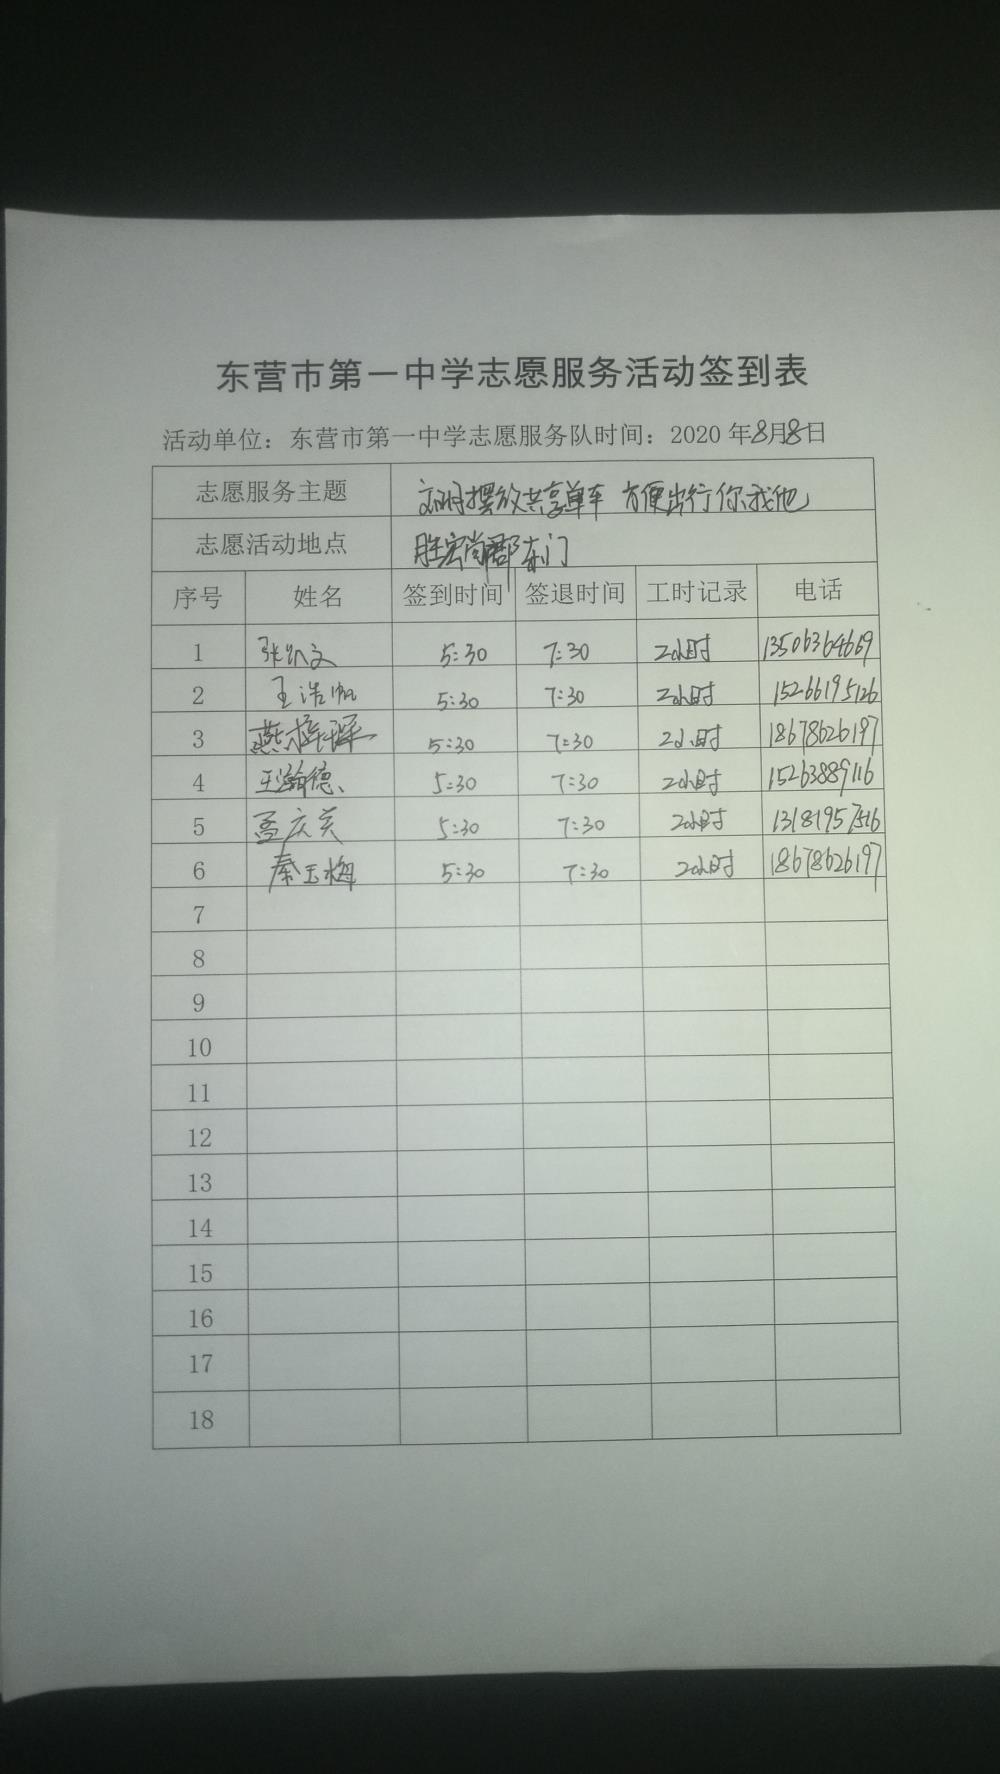 东营市第一中学志愿服务活动签到表
活动单位：东营市第一中学志愿服务队时间：2020 年8月8日
志愿服务主题 文明摆放共享单车 方便出行你我他
志愿活动地点 胜宏尚郡东门
序号 姓名 签到时间 签退时间 工时记录 电话
1 张凯文 5:30 7:30 2小时 13506364669
2 王浩帆 5:30 7:30 2小时 15266195126
3 5:30 7:30 2小时 18678626197
4 王瀚德 5:30 7:30 2小时 15263889116
5 孟庆英 5:30 7:30 2小时 13181957516
6 秦玉梅 5:30 7:30 2小时 18678626197
7
8
9
10
11
12
13
14
15
16
17
18